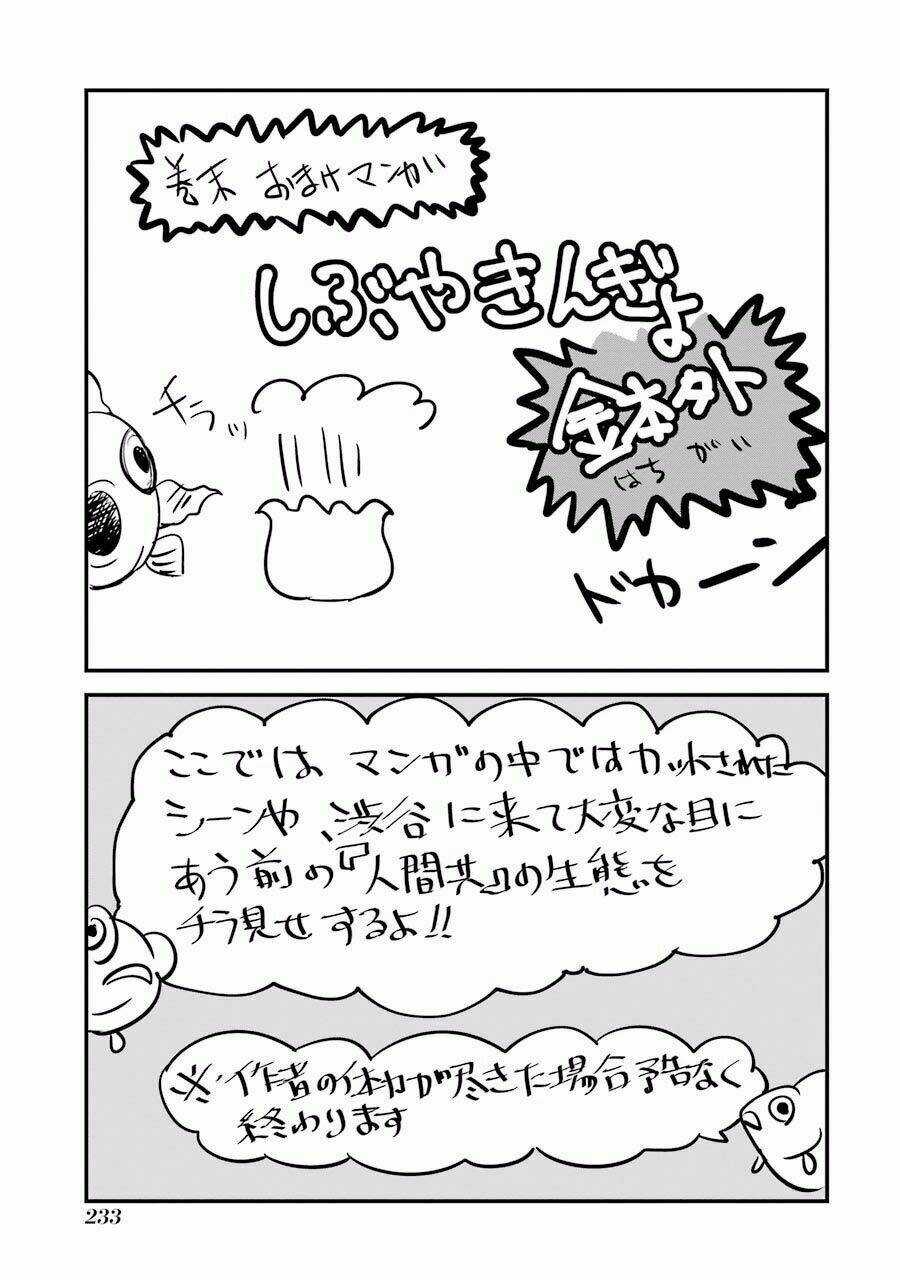 巻末 おまけマンガ
しぶやきんぎょ
鉢外
はちがい
チラッ
ドカーン
ここでは マンガの中ではカットされた
シーンや、渋谷に来て大変な目に
あう前の『人間共』の生態を
チラ見せするよ!!
※作者の体力が尽きた場合予告なく
終わります
233